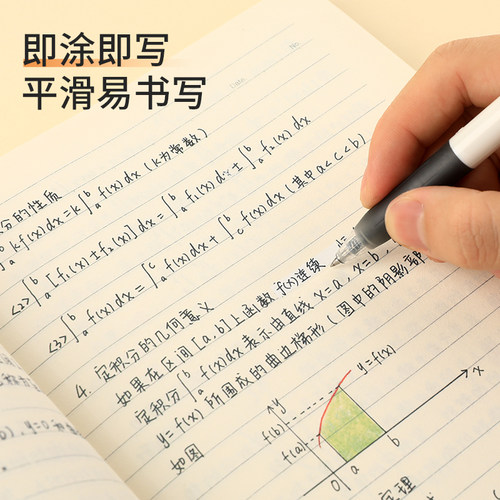 即涂即写
平滑易书写
Date
No.
分的性质
∫ₐᵇ kf(x)dx=k∫ₐᵇ f(x)dx (k为常数)
<2> ∫ₐᵇ [f₁(x)±f₂(x)]dx=∫ₐᵇ f₁(x)dx±∫ₐᵇ f₂(x)dx
<3> ∫ₐᵇ f(x)dx=∫ₐᶜ f(x)dx+∫꜀ᵇ f(x)dx (其中a<c<b)
4. 定积分的几何意义
如果在区间[a,b]上函数f(x)连续
定积分∫ₐᵇ f(x)dx表示由直线x=a, x=b,
y=f(x)所围成的曲边梯形(图中的阴影部
如图
y
y=f(x)
f(b)
f(a)
x
0
a
b
定理